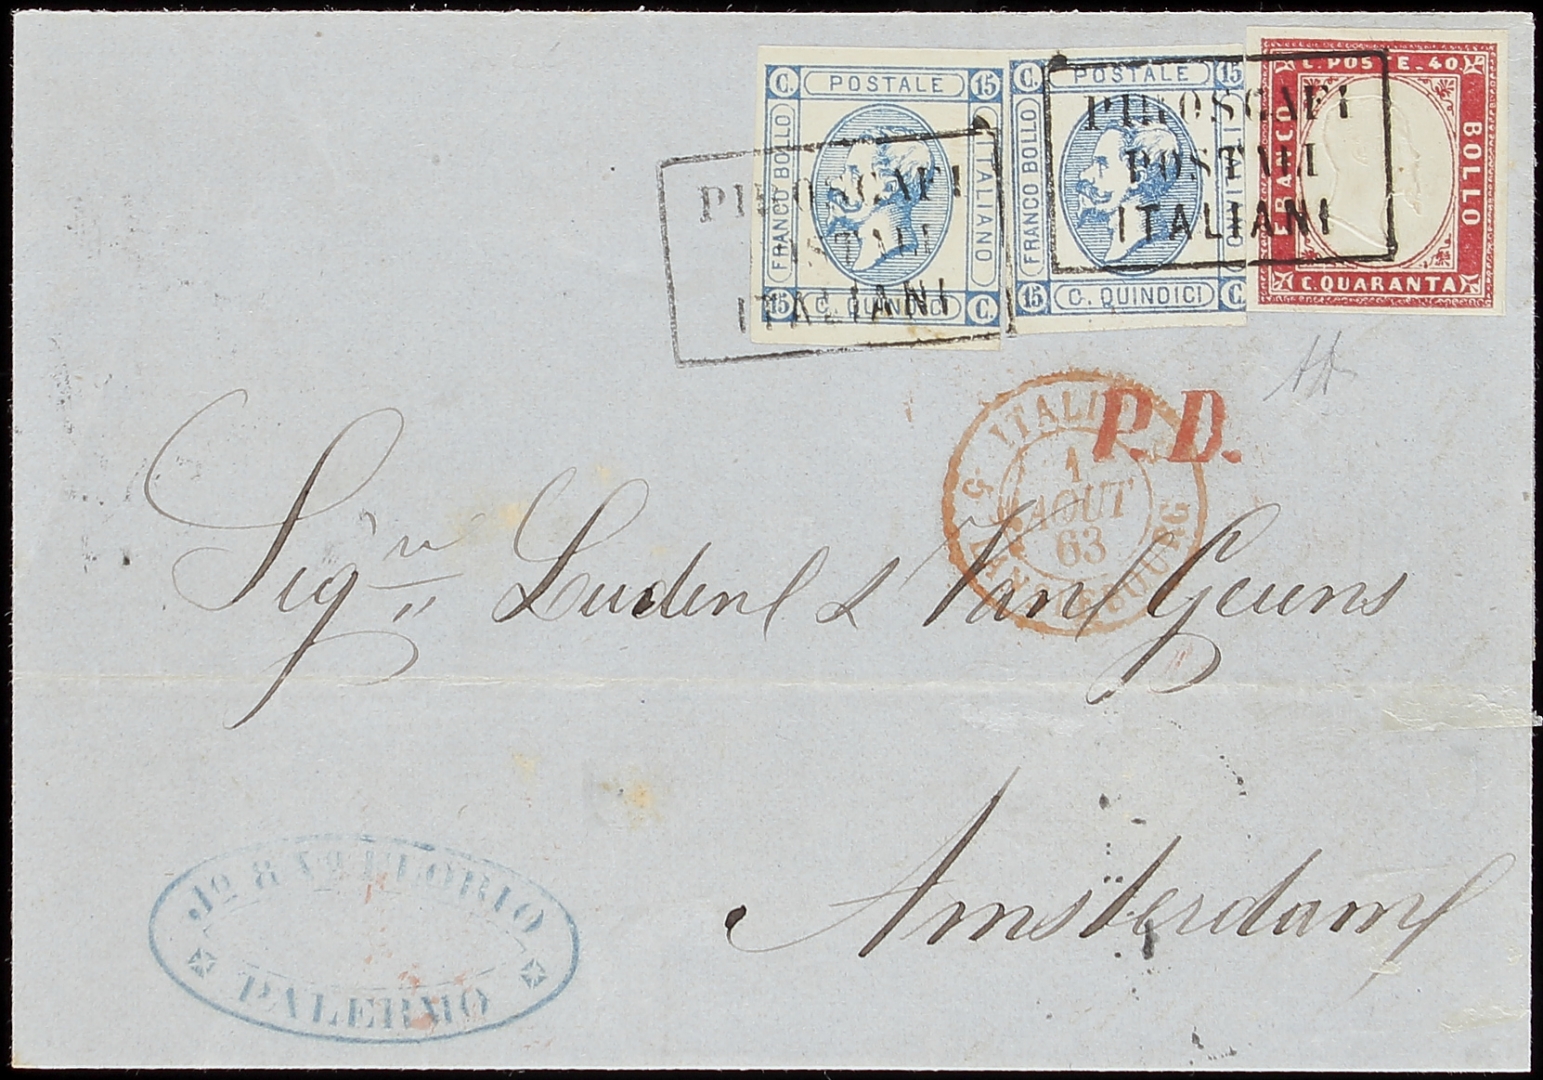 C. POSTALE 15
FRANCO BOLLO
ITALIANO
15 C. QUINDICI C.
C. POSTALE 15
FRANCO BOLLO
15 C. QUINDICI C.
C. POSTE. 40
FRANCO
BOLLO
C. QUARANTA
PIROSCAFI
POSTALI
ITALIANI
PIROSCAFI
POSTALI
ITALIANI
P.D.
ITALIE
1
AOUT
63
5 LANSLEBOURG 5
Sigri Luden & Van Geuns
Amsterdam
FLORIO
PALERMO